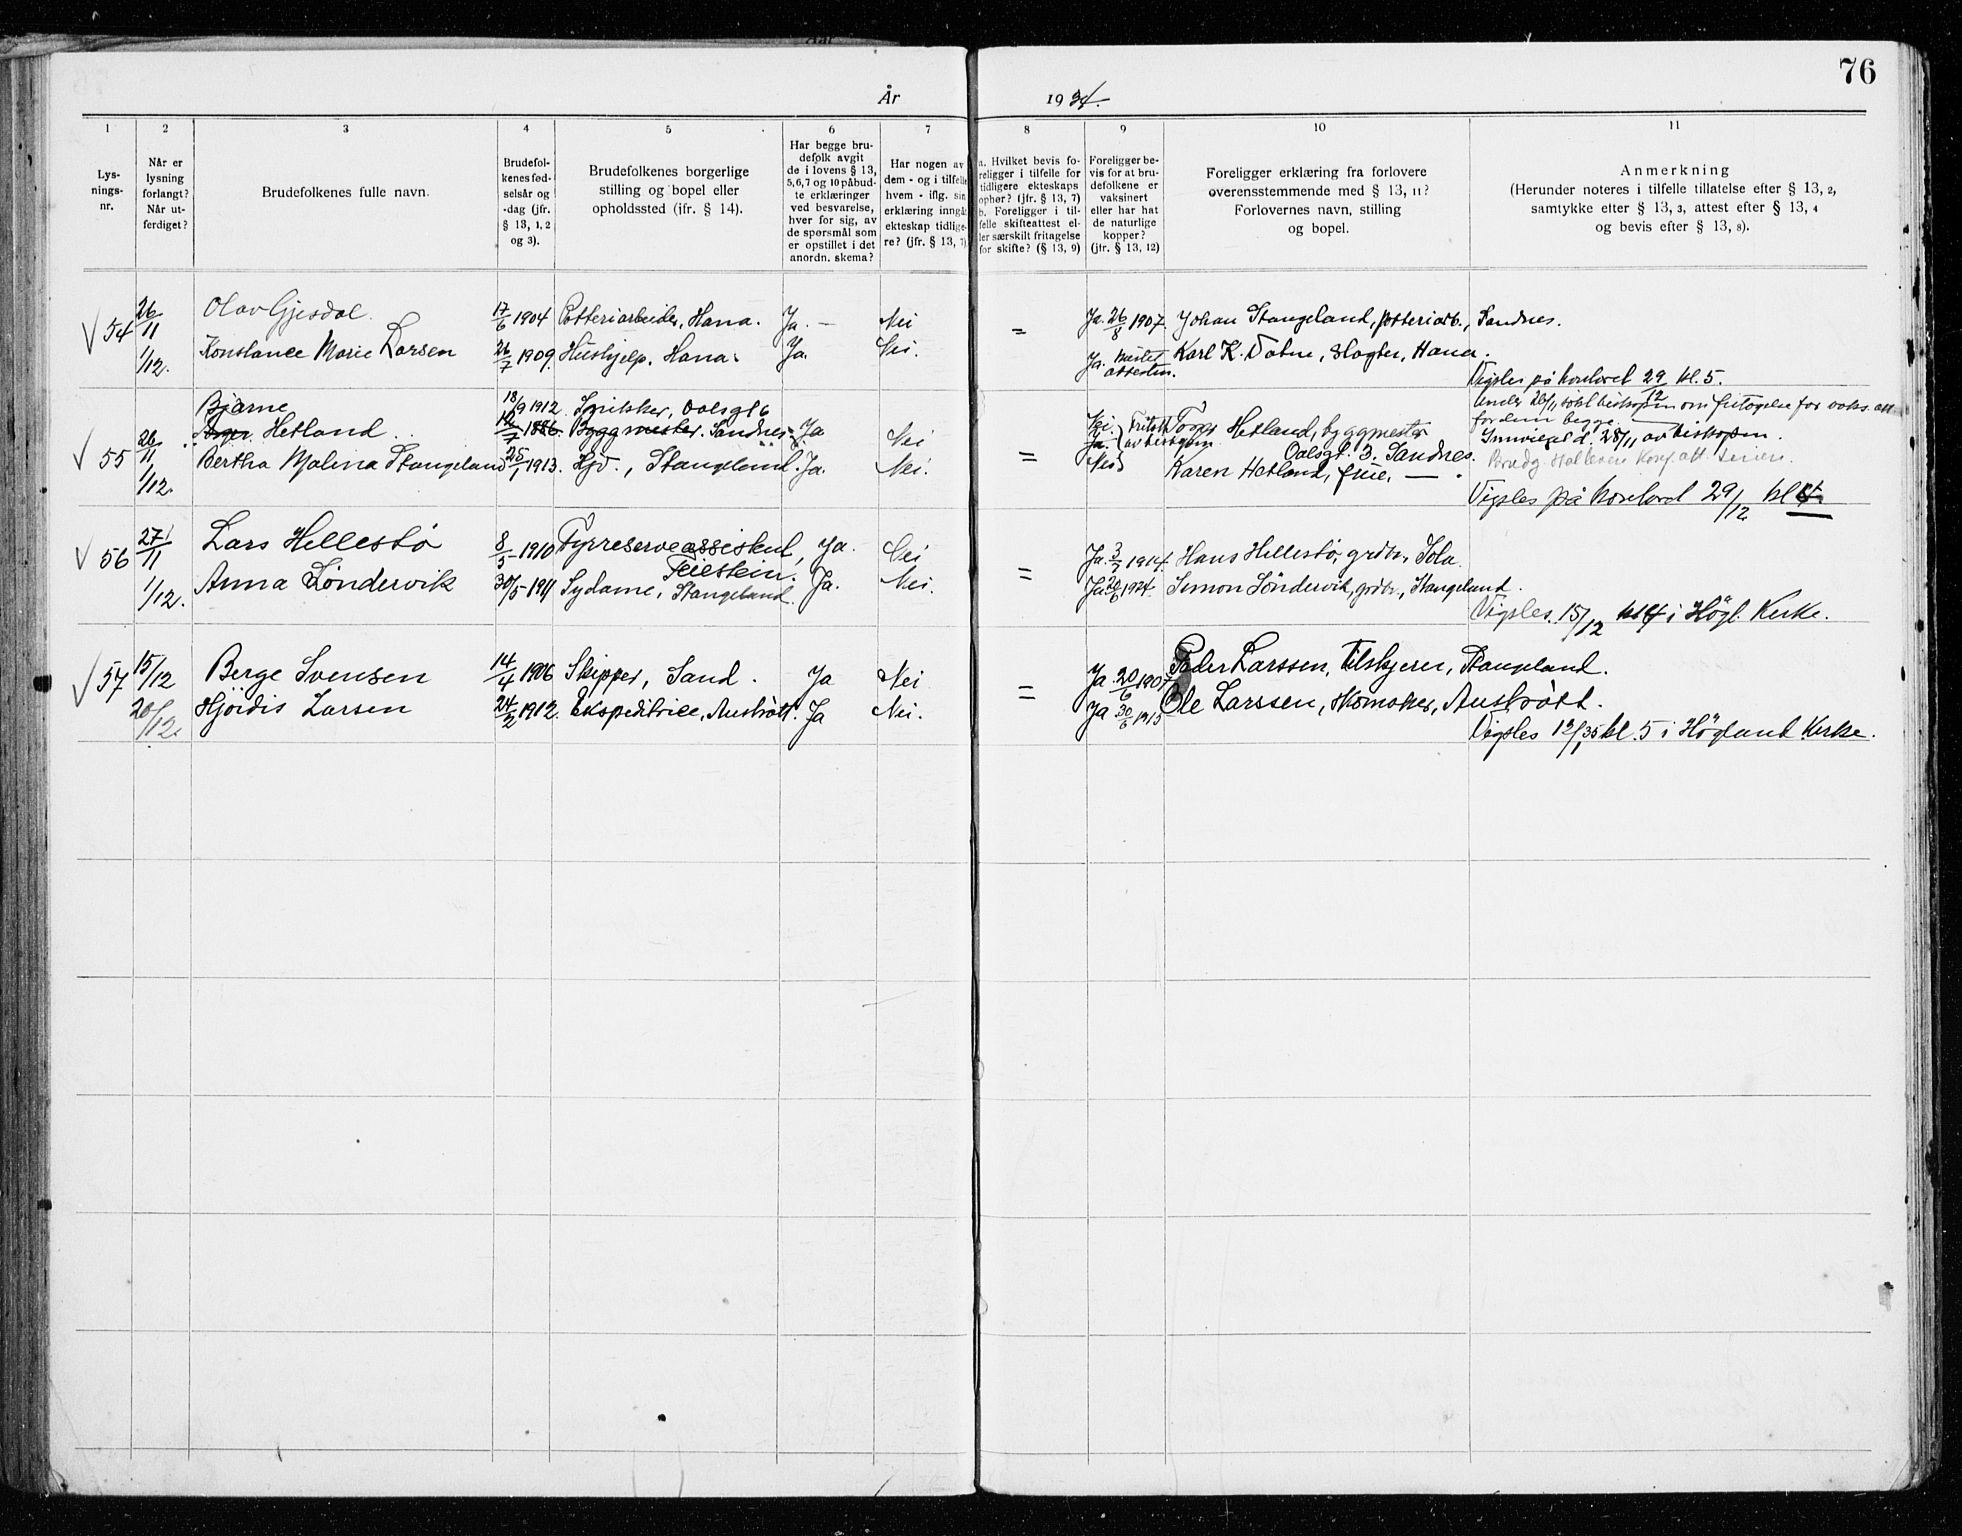 76
År 1934.
1 2 3 4 5 6 7 8 9 10 11
Lys-
nings-
nr.
Når er
lysning
forlangt?
Når ut-
ferdiget?
Brudefolkenes fulle navn.
Brudefol-
kenes fød-
selsår og
-dag (jfr.
§ 13, 1, 2
og 3).
Brudefolkenes borgerlige
stilling og bopel eller
opholdssted (jfr. § 14).
Har begge bru-
defolk avgit
de i lovens § 13,
5, 6, 7 og 10 påbud-
te erklæringer
ved besvarelse,
hver for sig, av
de spørsmål som
er opstillet i det
anordn. skema?
Har nogen av
dem - og i tilfelle
hvem - iflg. sin
erklæring inngåt
ekteskap tidlige-
re? (jfr. § 13, 7)
a. Hvilket bevis fo-
religger i tilfelle for
tidligere ekteskaps
ophør? (jfr. § 13, 7)
b. Foreligger i til-
felle skifteattest el-
ler særskilt fritagelse
for skifte? (§ 13, 9)
Foreligger be-
vis for at bru-
defolkene er
vaksinert
eller har hat
de naturlige
kopper?
(jfr. § 13, 12)
Foreligger erklæring fra forlovere
overensstemmende med § 13, 11?
Forlovernes navn, stilling
og bopel.
Anmerkning
(Herunder noteres i tilfelle tillatelse efter § 13, 2,
samtykke efter § 13, 3, attest efter § 13, 4
og bevis efter § 13, 8).
54 26/11 Olav Gjesdal. 17/6 1904 Potteriarbeider, Hana. Ja. — Nei = Ja. 26/8 1907. Johan Stangeland, potteriarb., Sandnes.
1/12. Konstance Marie Larsen 26/7 1909. Hushjelp, Hana. Ja. Nei. Ja. Mistet attesten. Karl K. Tatne, Slagter, Hana.
Vigsles på 29/12 kl. 5.
Bjarne 18/9 1912. Snekker, Oalsgt 6
55 26/11 Hetland. 12/7 1886. Byggmester. Sandnes. Ja Nei = Nei. Ja. Fritatt av biskopen Hetland, byggmester
Oalsgt. 3, Sandnes.
1/12. Bertha Malina Stangeland 25/1 1913. Hjv., Stangeland. Ja. Nei. Nei Karen Hetland, frue, — .
Under 26/11 søkt biskopen om fritagelse for vaks. att
for dem begge. —
Innvilget d. 28/11 av biskopen.
Vigsles på 29/12 kl 4.
56 27/11 Lars Hellestø 8/5 1910 Fyrreserveassistent, Feistein. Ja. Nei = Ja. 3/7 1914. Hans Hellestø, grdbr., Sola.
1/12. Anna Löndervik 30/5 1911 Sydame, Stangeland. Ja. Nei. Ja. 20/6 1924. Simon Söndervik, grdbr., Stangeland.
Vigsles 15/12 kl 4 i Högl. Kirke.
57 15/12 Berge Svensen 14/4 1906 Skipper, Sand. Ja Nei = Ja 20/6 1907. Peder Larssen, Tilskjerer, Stangeland.
20/12. Hjördis Larsen 24/2 1912. Ekspeditrice, Austrått. Ja Nei. Ja 30/6 1915 Ole Larssen, Skomaker, Austrått.
Vigsles 12/1 35 kl. 5 i Högland Kirke.